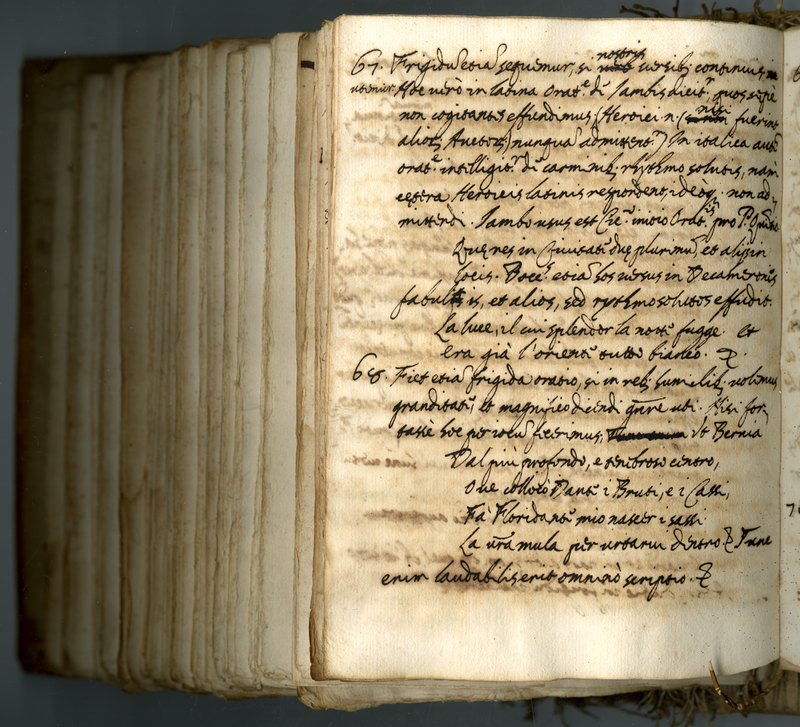 67. Frigidũ etiã sequemur, si nostris versib; continuis
utemur. Hoc verò in latina Orat.e dũ Jambis dicit.r, quos sepè
non cogitantes effundimus (Heroici n. (nisi fuerint
alior; Auctor;) nunquã admittent.r) In italica aut̃
orat.e intelligit.r dũ carminib; rhythmo solutis, nam
cetera Heroicis latinis respondent, ideoq; non ad-
mittendi. Jambo usus est Cic. initio Orat.is pro P. Quintio
Que res in Civitate due plurimũ, et aliis in
locis. Bocc. etiã hos versus in Decameronis
fabulis, et alios, sed rythmo solutos effudit.
La luce, il cui splendor la notte fugge. et
Era già l'oriente tutto bianco.
68. Fiet etiã frigida oratio, si in reb; humilib; volumus
granditate, et magnifico dicendi gñre uti. Nisi for-
tassè hoc per iocũ fecerimus, ut Bernia
Dal più profondo, e tenebroso centro,
Ove collocò Dante i Bruti, e i Cassi,
Fa Floridante mio nascer i sassi
La vr̃a mula per urtarvi dentro Tunc
enim laudabilis erit omninò scriptio.